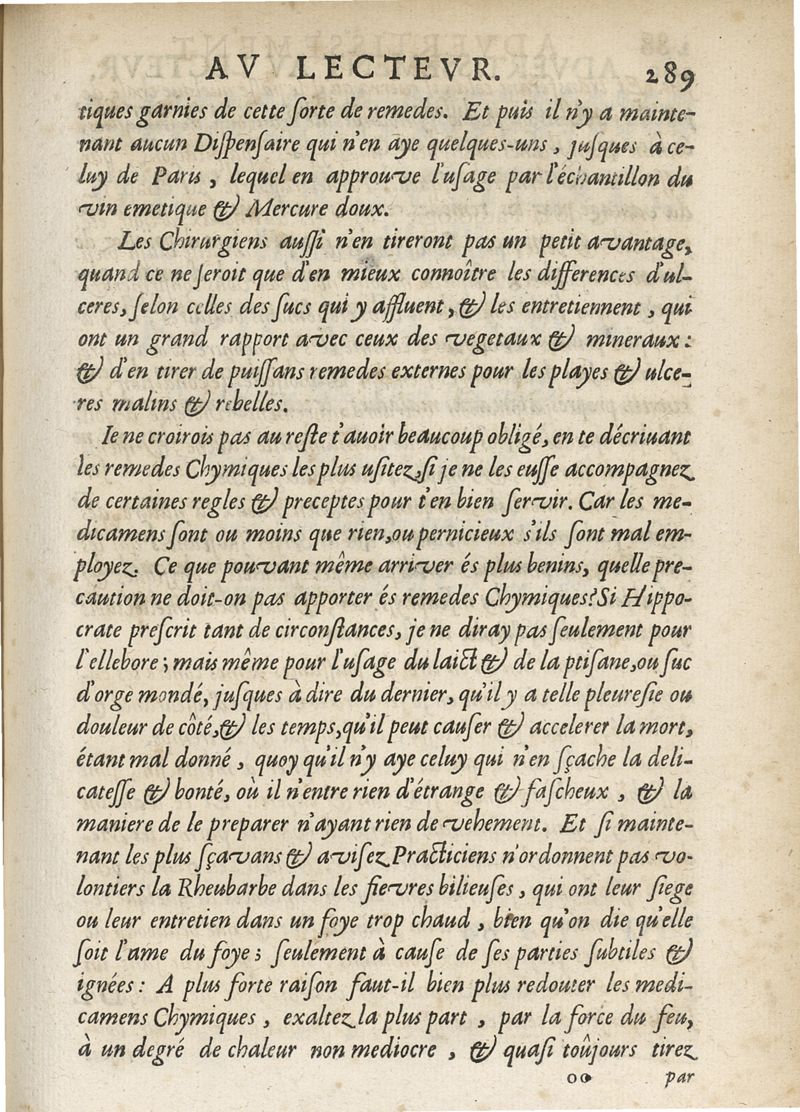 AV LECTEVR. 289
tiques garnies de cette ſorte de remedes. Et puis il n'y a mainte-
nant aucun Diſpenſaire qui n'en aye quelques-uns, juſques à ce-
luy de Paris, lequel en approuve l'uſage par l'échantillon du
vin emetique & Mercure doux.
Les Chirurgiens auſſi n'en tireront pas un petit avantage,
quand ce ne ſeroit que d'en mieux connoître les differences d'ul-
ceres, ſelon celles des ſucs qui y affluent, & les entretiennent, qui
ont un grand rapport avec ceux des vegetaux & mineraux:
& d'en tirer de puiſſans remedes externes pour les playes & ulce-
res malins & rebelles.
Ie ne croirois pas au reſte t'auoir beaucoup obligé, en te décriuant
les remedes Chymiques les plus uſitez, ſi je ne les euſſe accompagnez
de certaines regles & preceptes pour t'en bien ſervir. Car les me-
dicamens ſont ou moins que rien, ou pernicieux s'ils ſont mal em-
ployez. Ce que pouvant même arriver és plus benins, quelle pre-
caution ne doit-on pas apporter és remedes Chymiques? Si Hippo-
crate preſcrit tant de circonſtances, je ne diray pas ſeulement pour
l'ellebore; mais même pour l'uſage du laict & de la ptiſane, ou ſuc
d'orge mondé, juſques à dire du dernier, qu'il y a telle pleureſie ou
douleur de côté, & les temps, qu'il peut cauſer & accelerer la mort,
étant mal donné, quoy qu'il n'y aye celuy qui n'en ſçache la deli-
cateſſe & bonté, où il n'entre rien d'étrange & faſcheux, & la
maniere de le preparer n'ayant rien de vehement. Et ſi mainte-
nant les plus ſçavans & aviſez Practiciens n'ordonnent pas vo-
lontiers la Rheubarbe dans les fievres bilieuſes, qui ont leur ſiege
ou leur entretien dans un foye trop chaud, bien qu'on die qu'elle
ſoit l'ame du foye; ſeulement à cauſe de ſes parties ſubtiles &
ignées: A plus forte raiſon faut-il bien plus redouter les medi-
camens Chymiques, exaltez la plus part, par la force du feu,
à un degré de chaleur non mediocre, & quaſi toûjours tirez
oo par